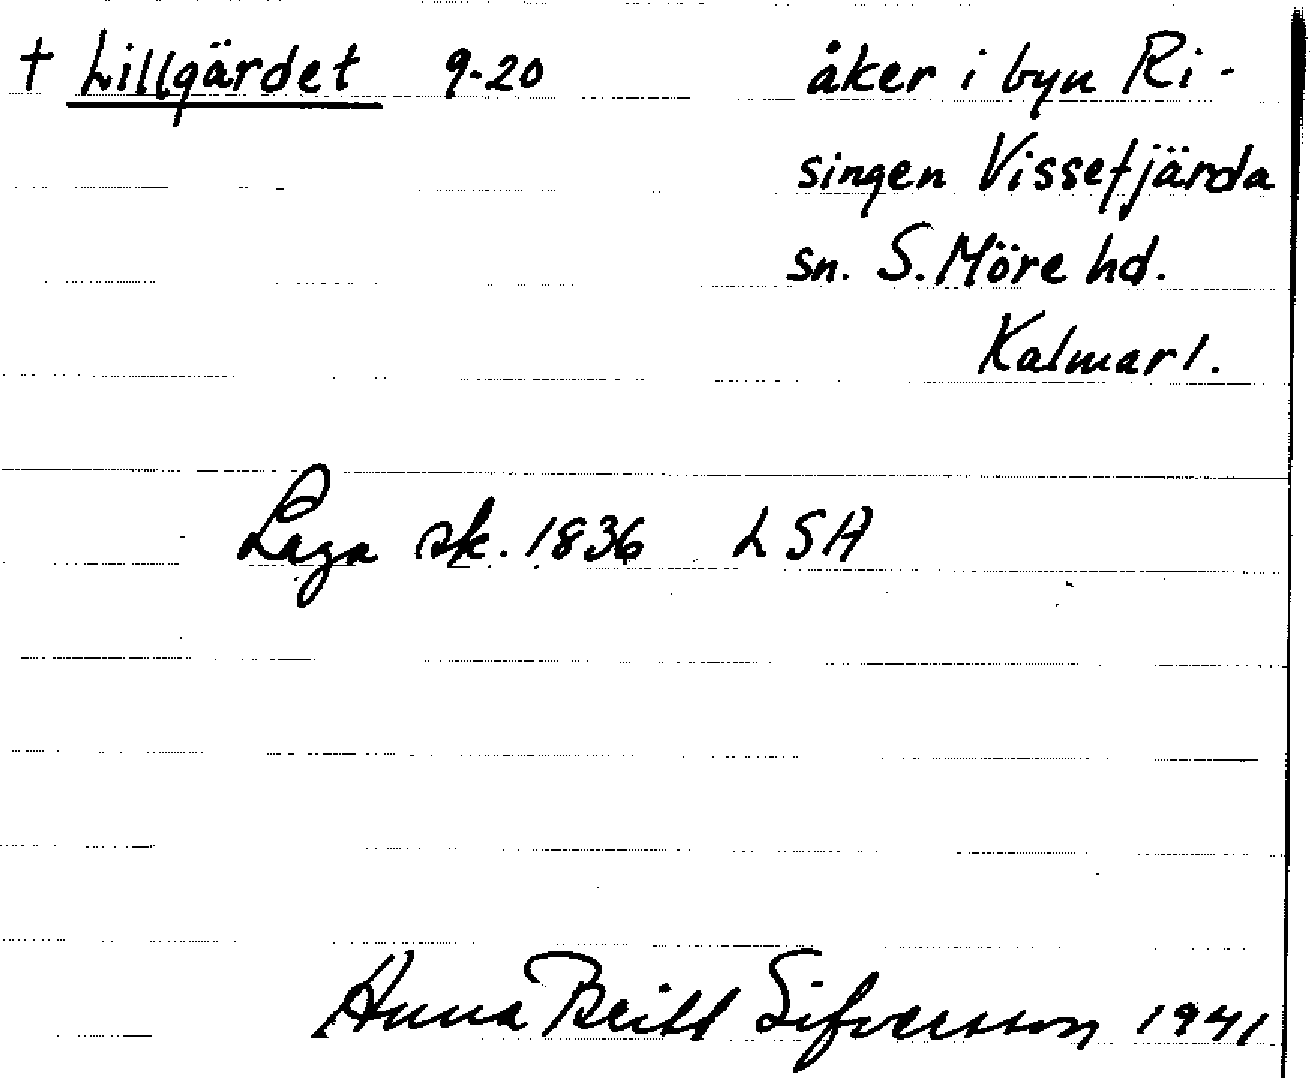 † Lillgärdet 9-20 åker i byn Ri-
singen Vissefjärda
sn. S. Möre hd.
Kalmar l.
Laga sk. 1836 LSA
Anna Britt Sifversson 1941